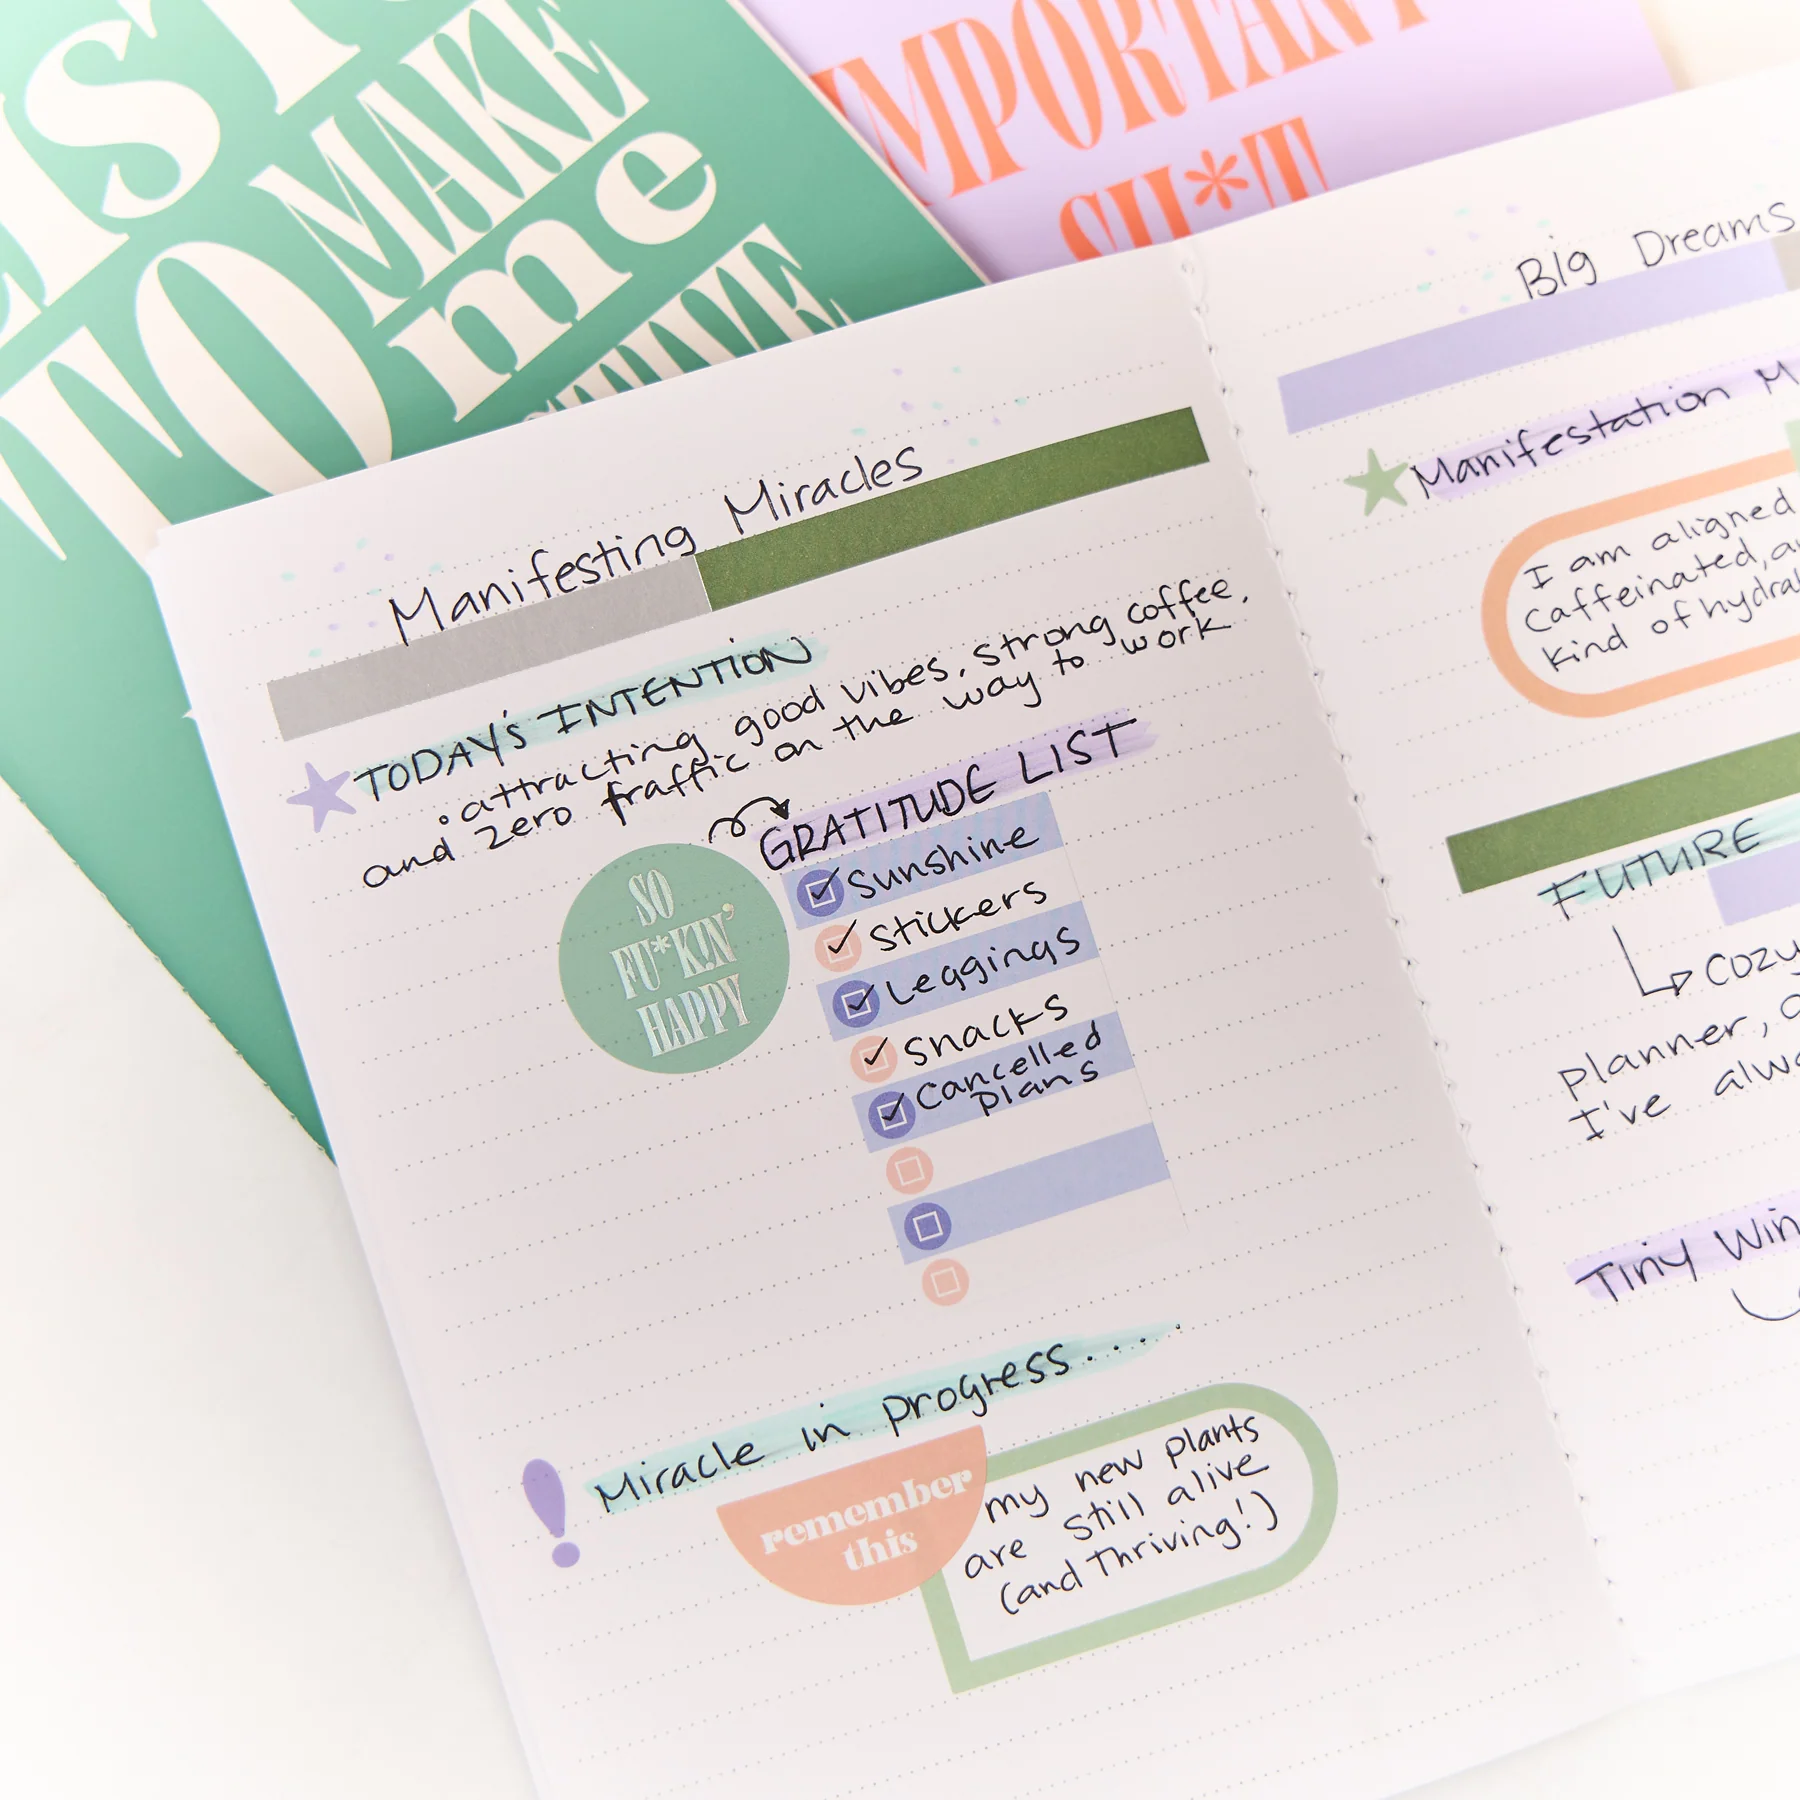 TO MAKE
me
IMPORTANT
SH*T
Manifesting Miracles
TODAY'S INTENTION
• attracting good vibes, strong coffee,
and zero traffic on the way to work
GRATITUDE LIST
SO
FU*KIN'
HAPPY
Sunshine
Stickers
Leggings
Snacks
Cancelled
Plans
Miracle in progress....
remember
this
my new plants
are still alive
(and Thriving!)
Big Dreams
Manifestation M
I am aligned
Caffeinated, a
kind of hydra
FUTURE
cozy
planner,
I've alwa
Tiny Win